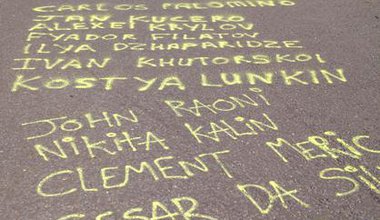 CARLOS PALOMINO
JAN KUCERO
ALEXE KRYLOV
FYADOR FILATOV
ILYA DZHAPARIDZE
IVAN KHUTORSKOI
KOSTYA LUNKIN
JOHN RAONI
NIKITA KALIN
CLEMENT MERIC
CESAR DA SIL